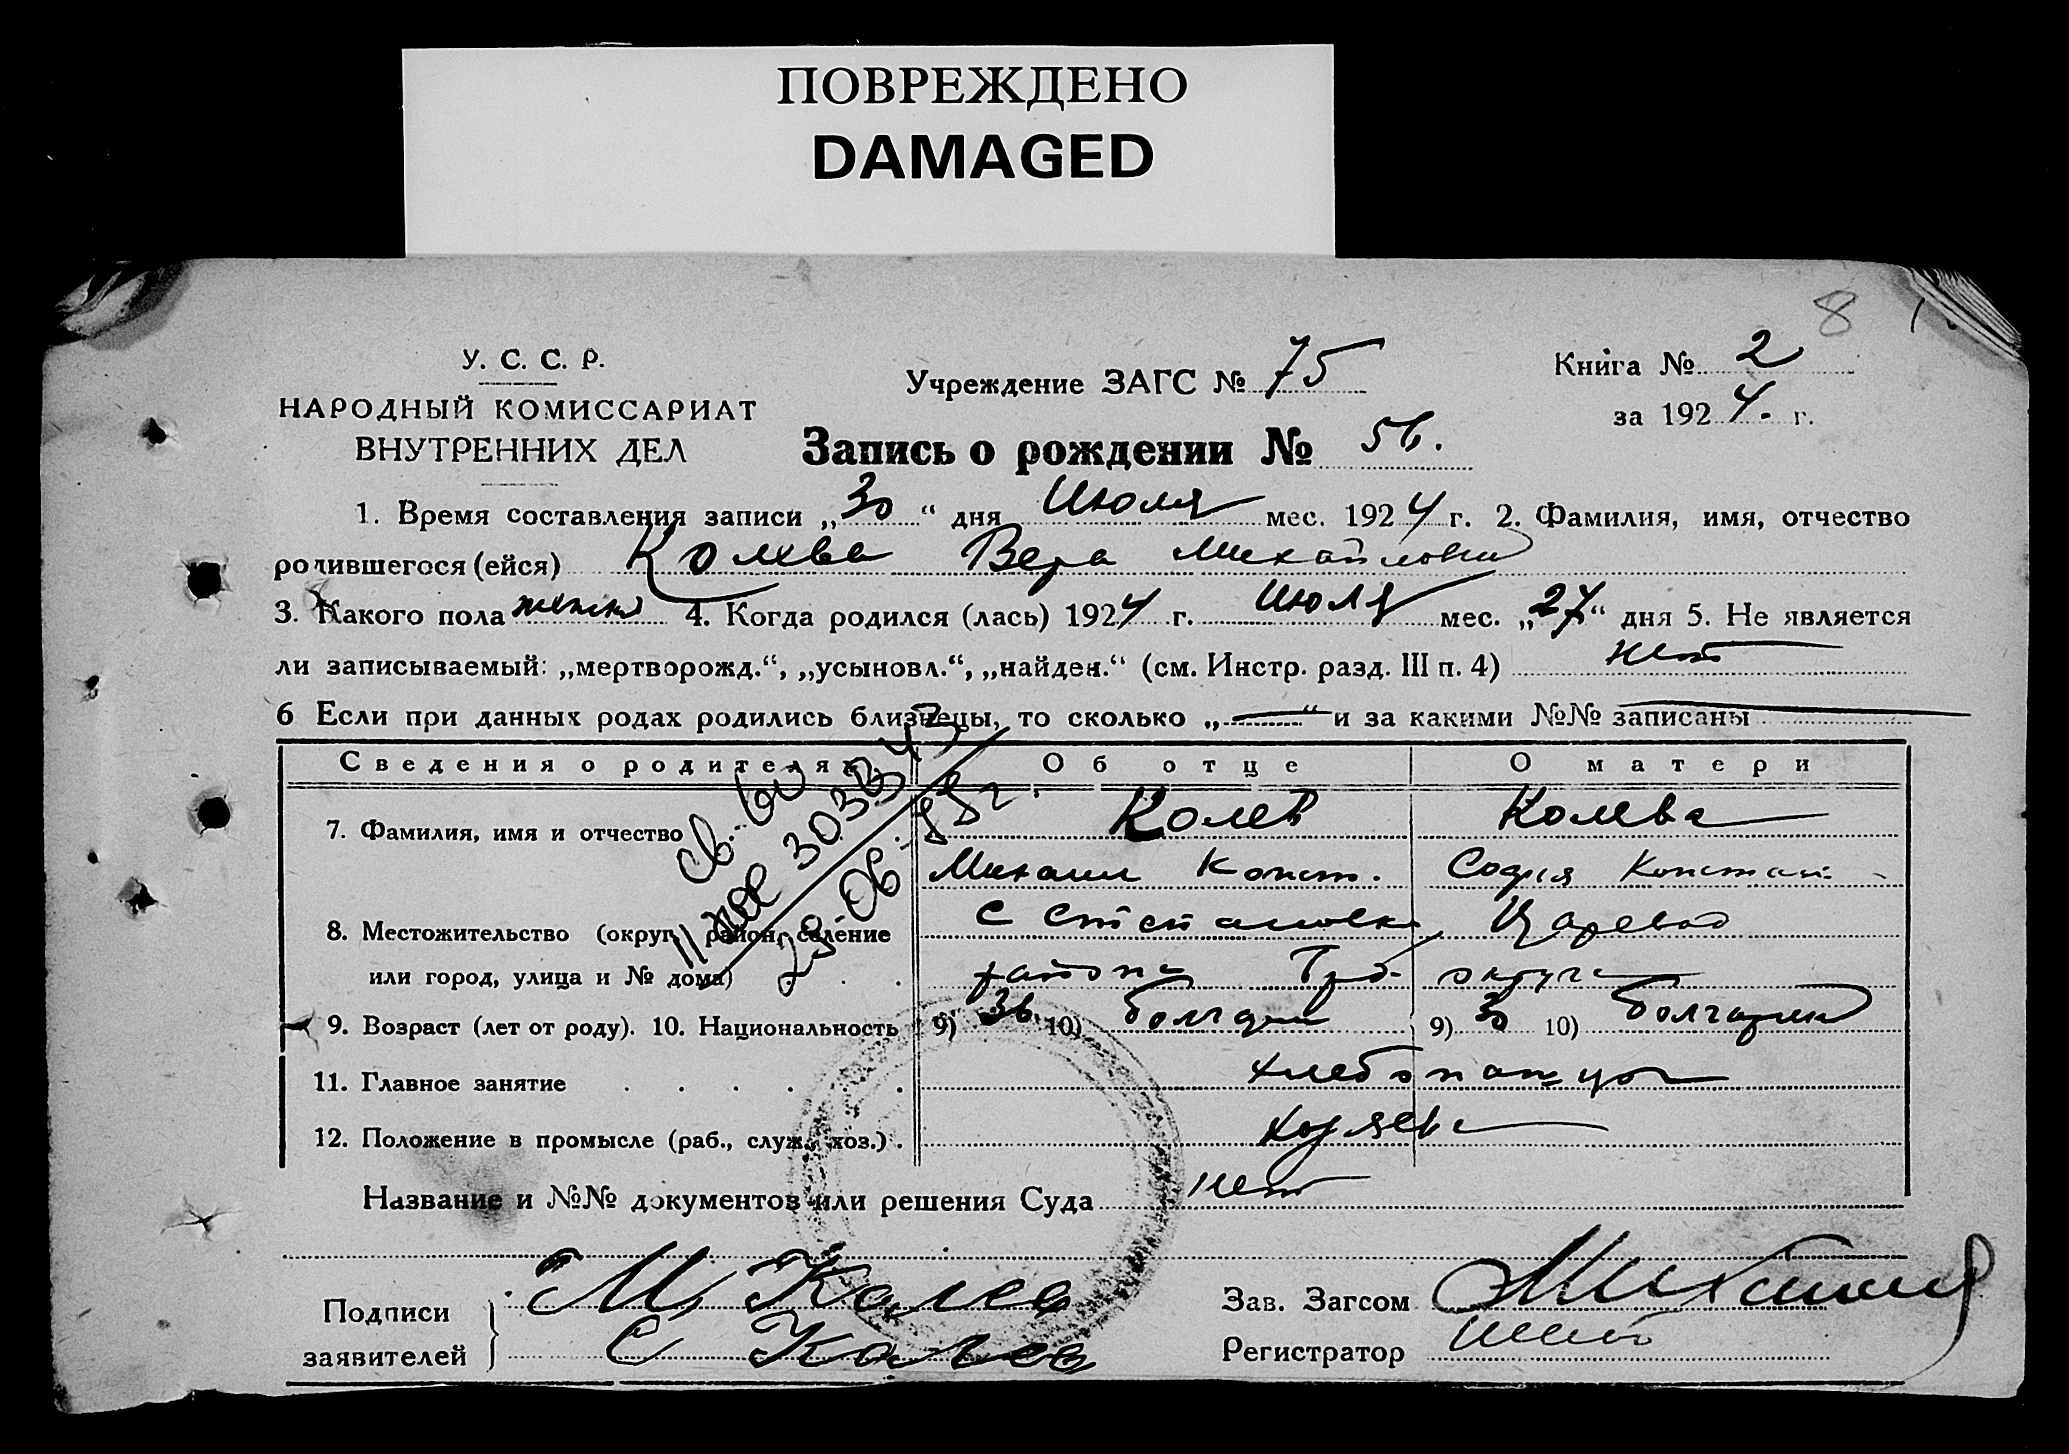 ПОВРЕЖДЕНО
DAMAGED
8
У. С. С. Р.
НАРОДНЫЙ КОМИССАРИАТ
ВНУТРЕННИХ ДЕЛ
Учреждение ЗАГС № 75
Книга № 2
за 1924. г.
Запись о рождении № 56.
1. Время составления записи „30“ дня Июля мес. 1924 г. 2. Фамилия, имя, отчество
родившегося (ейся) Колева Вера Михайловна
3. Какого пола женск 4. Когда родился (лась) 1924 г. Июля мес. „27“ дня 5. Не является
ли записываемый: „мертворожд.“, „усыновл.“, „найден.“ (см. Инстр. разд. III п. 4) нет
6 Если при данных родах родились близнецы, то сколько „—“ и за какими №№ записаны
Сведения о родителях Об отце О матери
7. Фамилия, имя и отчество Колев Колева
Михаил Конст. София Констан
8. Местожительство (округ, район, селение с Степановка Царевод
или город, улица и № дома) района округа
9. Возраст (лет от роду). 10. Национальность 9) 36 10) болгарин 9) 30 10) болгарка
11. Главное занятие хлебопашцы
12. Положение в промысле (раб., служ., хоз.) хозяева
Название и №№ документов или решения Суда нет
Подписи
заявителей
М Колев
С Колев
Зав. Загсом
Регистратор
св-во
303343